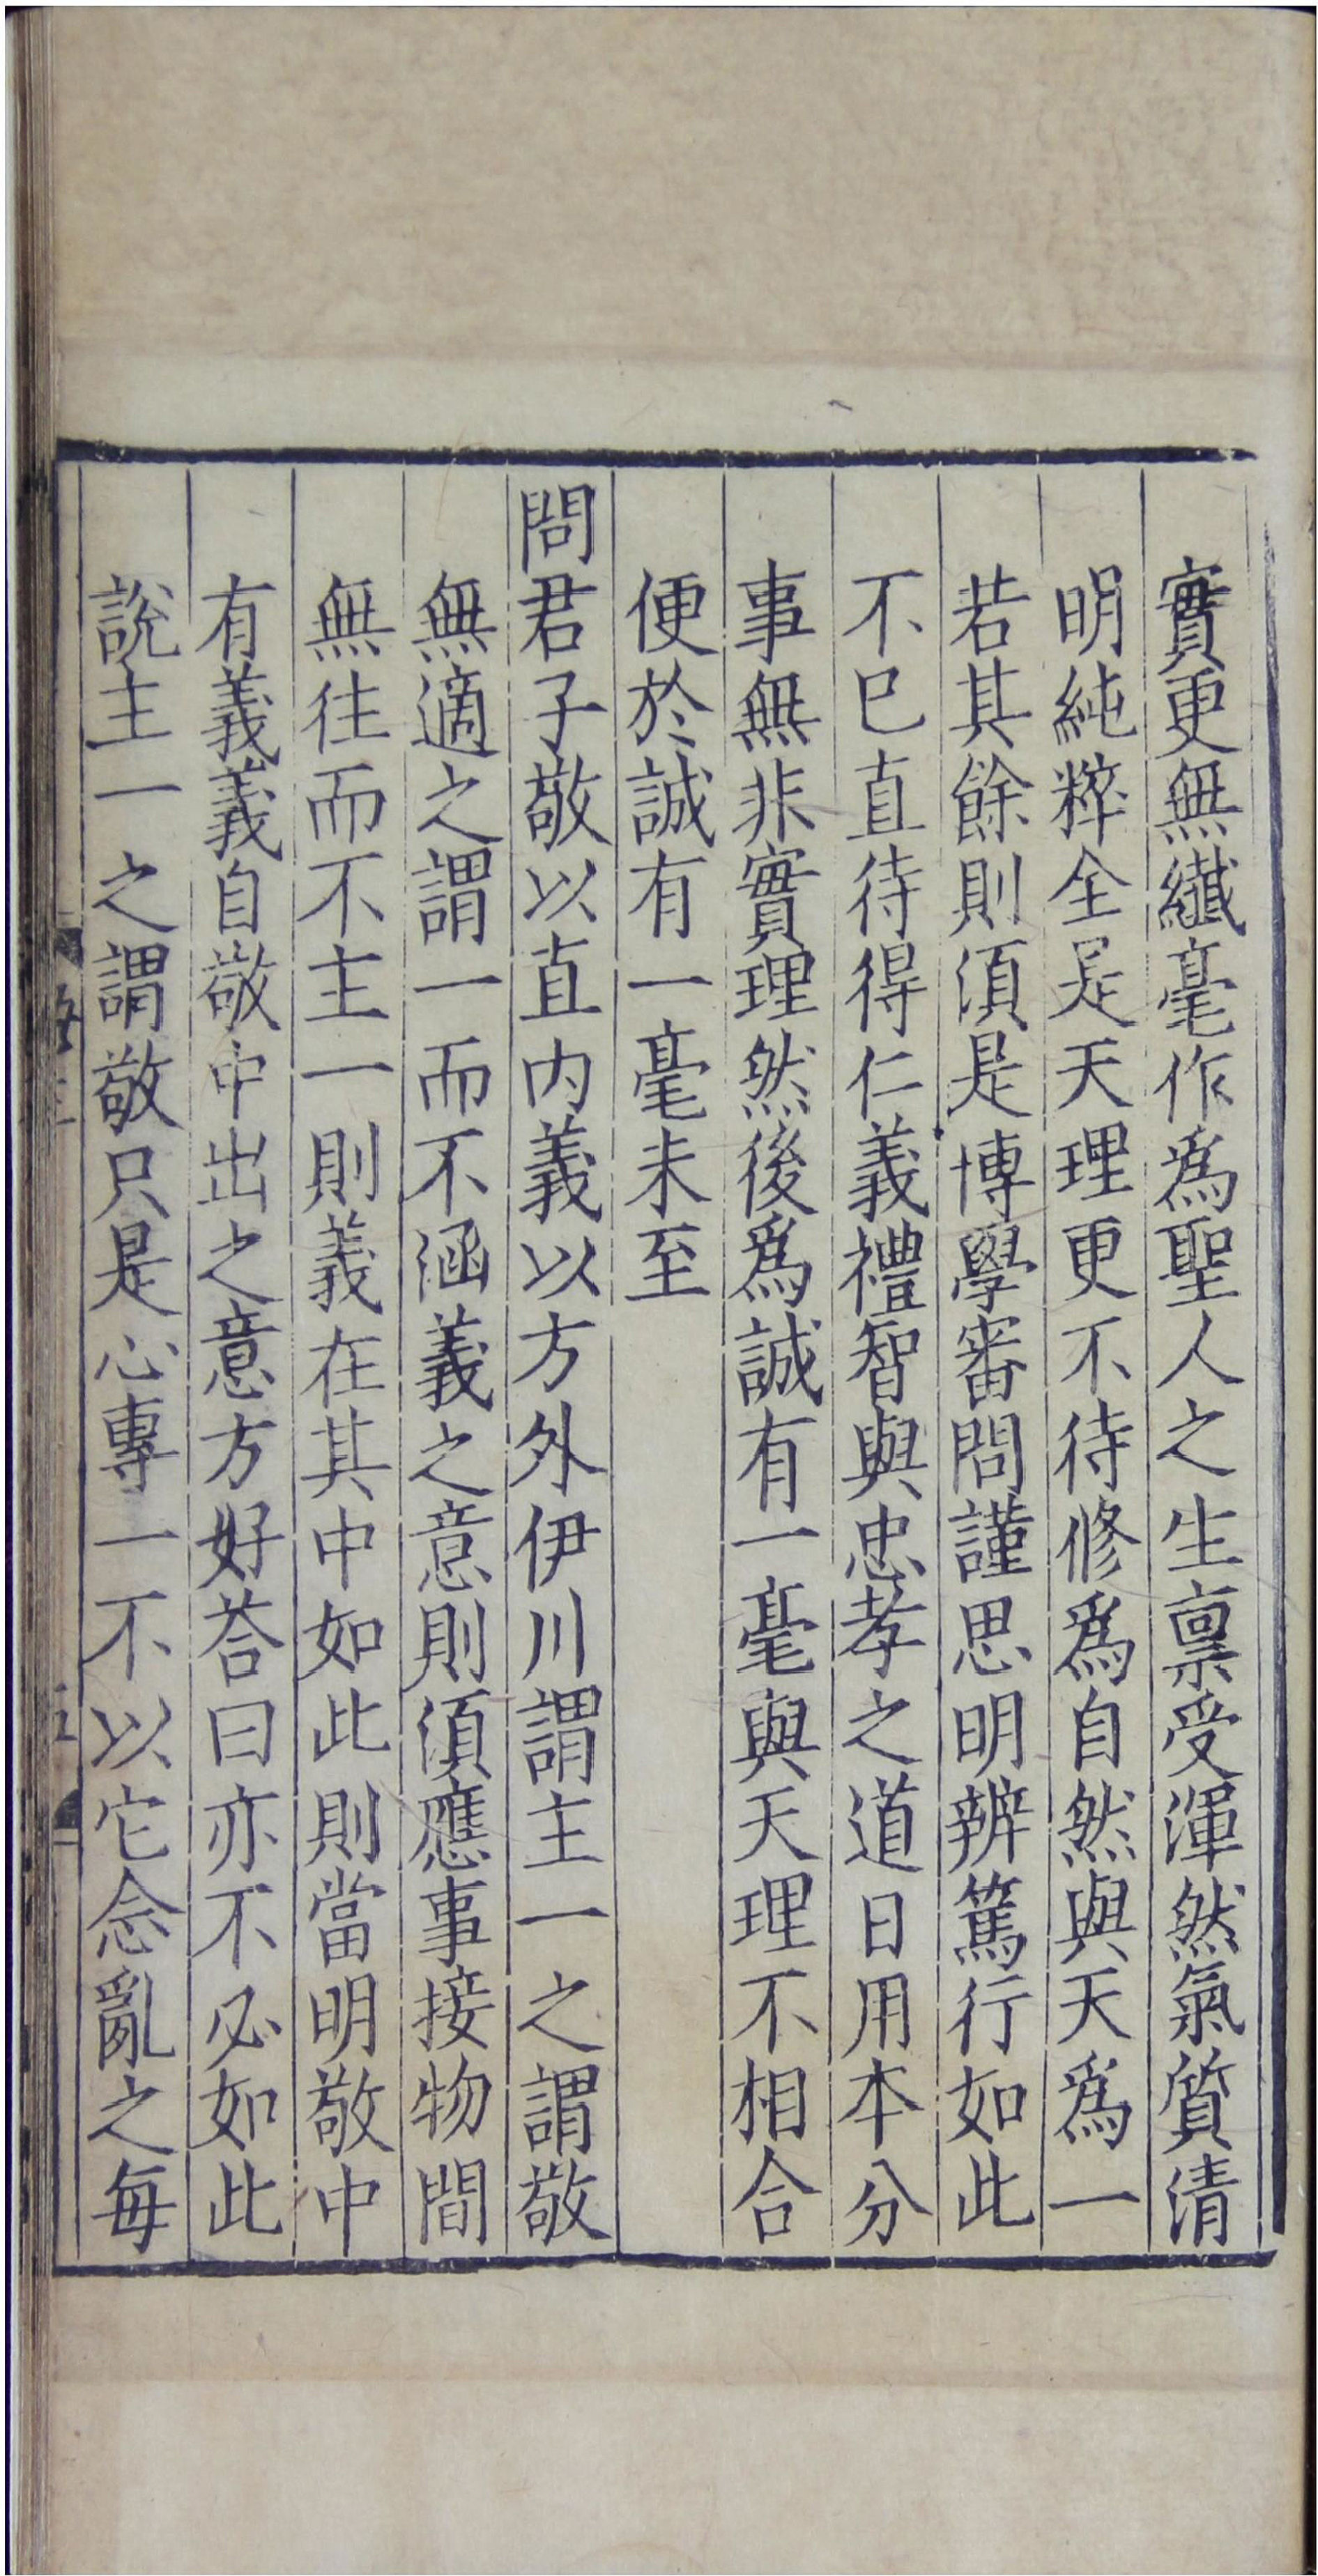 實更無纖毫作爲聖人之生稟受渾然氣質清
明純粹全是天理更不待修爲自然與天爲一
若其餘則須是博學審問謹思明辨篤行如此
不已直待得仁義禮智與忠孝之道日用本分
事無非實理然後爲誠有一毫與天理不相合
便於誠有一毫未至
問君子敬以直内義以方外伊川謂主一之謂敬
無適之謂一而不涵義之意則須應事接物間
無往而不主一則義在其中如此則當明敬中
有義義自敬中出之意方好荅曰亦不必如此
說主一之謂敬只是心專一不以它念亂之每